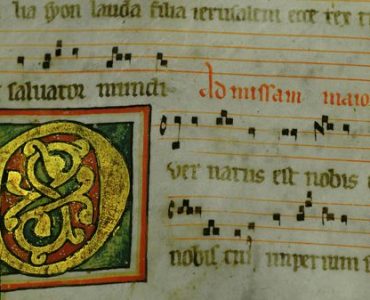 lia syon lauda filia ierusalem ecce rex t
saluator mundi Ad missam maio
P
uer natus est nobis
nobis cu imperium s